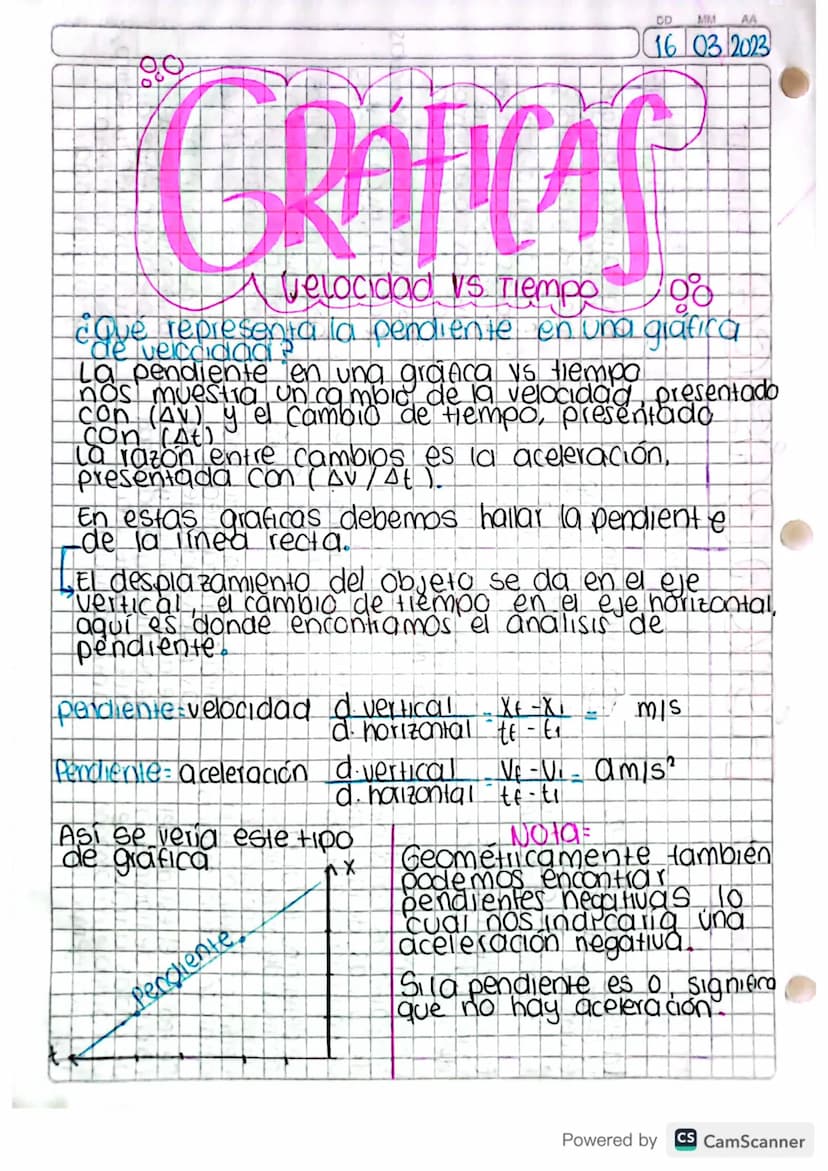 DD MM AA
16 03 2023
GRÁFICAS
Velocidad VS Tiempo
¿Qué representa la pendiente en una gráfica
de velocidad?
La pendiente en una gráfica vs tiempo
nos muestra un cambio de la velocidad, presentado
con (ΔV) y el cambio de tiempo, presentado
con (Δt)
La razón entre cambios es la aceleración,
presentada con (ΔV/Δt).
En estas graficas debemos hallar la pendiente
de la línea recta.
El desplazamiento del objeto se da en el eje
vertical, el cambio de tiempo en el eje horizontal,
aquí es donde encontramos el analisis de
pendiente.
pendiente=velocidad d. vertical = Xf - Xi = m/s
d. horizontal tf - ti
Pendiente= aceleración d. vertical = Vf - Vi = a m/s²
d. horizontal tf - ti
Así se vería este tipo
de gráfica
x
Pendiente.
t
Nota:
Geométricamente también
podemos encontrar
pendientes negativas lo
cual nos indicaría una
aceleración negativa.
Si la pendiente es 0, significa
que no hay aceleración.
Powered by CS CamScanner